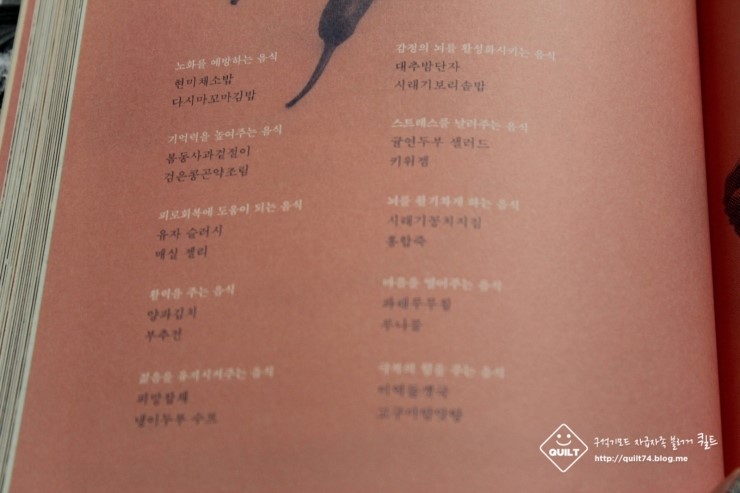 노화를 예방하는 음식
현미채소밥
다시마꼬마김밥
기억력을 높여주는 음식
봄동사과겉절이
검은콩곤약조림
피로회복에 도움이 되는 음식
유자 슬러시
매실 젤리
활력을 주는 음식
양파김치
부추전
젊음을 유지시켜주는 음식
피망잡채
냉이두부 수프
감정의 뇌를 활성화시키는 음식
대추밤단자
시래기보리솥밥
스트레스를 날려주는 음식
귤연두부 샐러드
키위잼
뇌를 활기차게 하는 음식
시래기꽁치지짐
홍합죽
마음을 열어주는 음식
파래두부찜
무나물
극복의 힘을 주는 음식
미역들깻국
QUILT
구석기모드 자급자족 블로거 퀼트
http://quilt74.blog.me